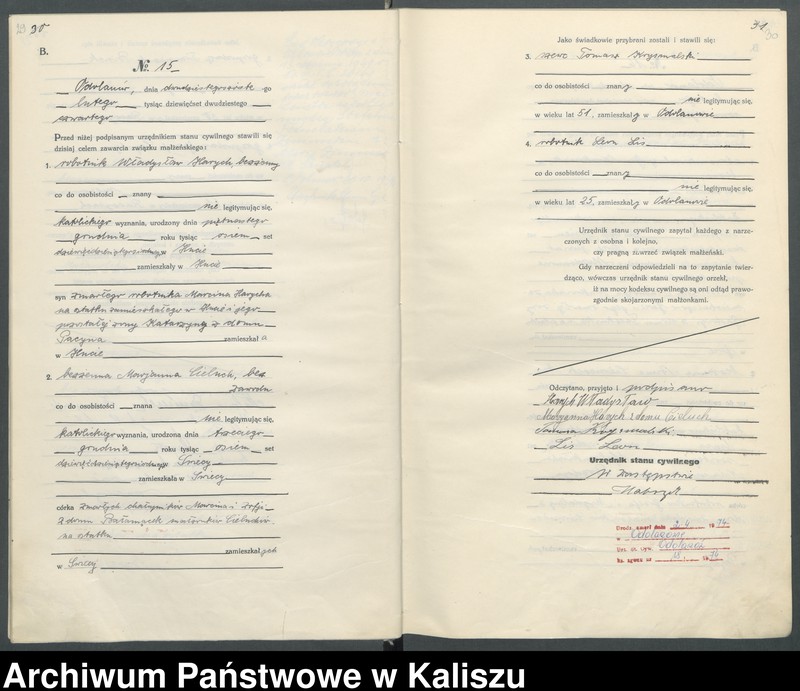 30
B.
№ 15
Odolanów, dnia dwudziestego
lutego tysiąc dziewięćset dwudziestego
czwartego
Przed niżej podpisanym urzędnikiem stanu cywilnego stawili się
dzisiaj celem zawarcia związku małżeńskiego:
1. robotnik Władysław Harych, bezżenny
co do osobistości znany
nie legitymując się,
katolickiego wyznania, urodzony dnia piętnastego
grudnia roku tysiąc osiem set
w Hucie
zamieszkały w Hucie
syn zmarłego robotnika Marcina Harycha
na ostatku zamieszkałego w Hucie i jego
pozostałej żony Katarzyny z domu
Pacyna zamieszkała
w Hucie
2. bezżenna Maryanna Cieluch, bez
zawodu
co do osobistości znana
nie legitymując się,
katolickiego wyznania, urodzona dnia trzeciego
grudnia roku tysiąc osiem set
w Świecy
zamieszkała w Świecy
córka zmarłych chałupników Marcina i Zofji
z domu małżonków Cieluchów
na ostatku
zamieszkałych
w Świecy
31
Jako świadkowie przybrani zostali i stawili się:
3. szewc Tomasz Krzyżmalski
co do osobistości znany
nie legitymując się,
w wieku lat 51, zamieszkały w Odolanowie
4. robotnik Leon Lis
co do osobistości znany
nie legitymując się,
w wieku lat 25, zamieszkały w Odolanowie
Urzędnik stanu cywilnego zapytał każdego z narze-
czonych z osobna i kolejno,
czy pragną zawrzeć związek małżeński.
Gdy narzeczeni odpowiedzieli na to zapytanie twier-
dząco, wówczas urzędnik stanu cywilnego orzekł,
iż na mocy kodeksu cywilnego są oni odtąd prawo-
zgodnie skojarzonymi małżonkami.
Odczytano, przyjęto i podpisano
Harych Władysław
Maryanna Harych z domu Cieluch
Tomasz
Lis Leon
Urzędnik stanu cywilnego
W zastępstwie
zmarł dnia 1974
w Odolanowie
Odolanów
Archiwum Państwowe w Kaliszu